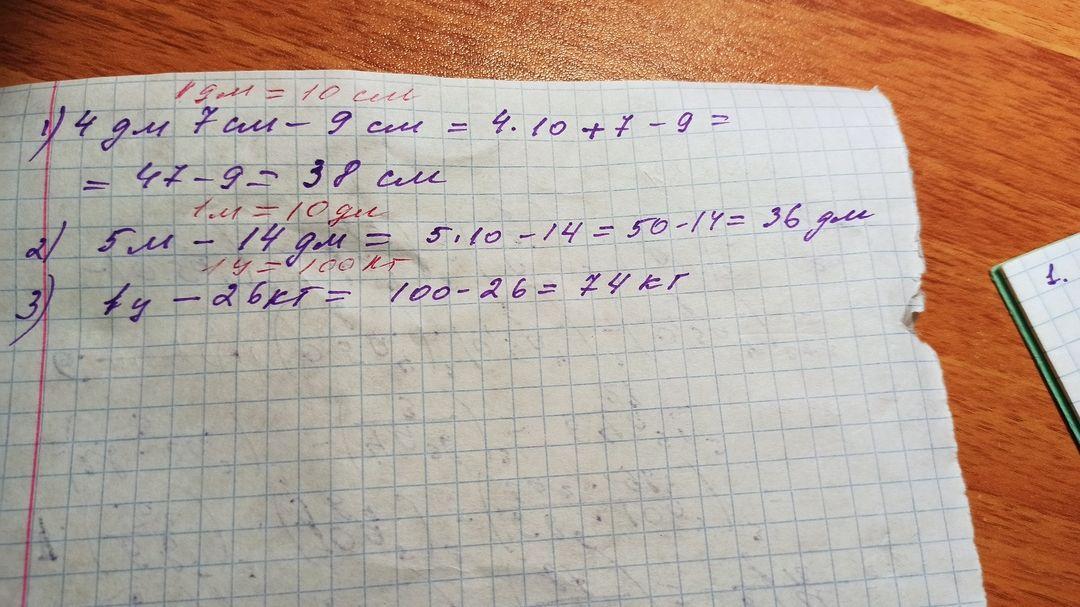 1 дм = 10 см
1) 4 дм 7 см - 9 см = 4 · 10 + 7 - 9 =
= 47 - 9 = 38 см
1 м = 10 дм
2) 5 м - 14 дм = 5 · 10 - 14 = 50 - 14 = 36 дм
1 ц = 100 кг
3) 1 ц - 26 кг = 100 - 26 = 74 кг
1.